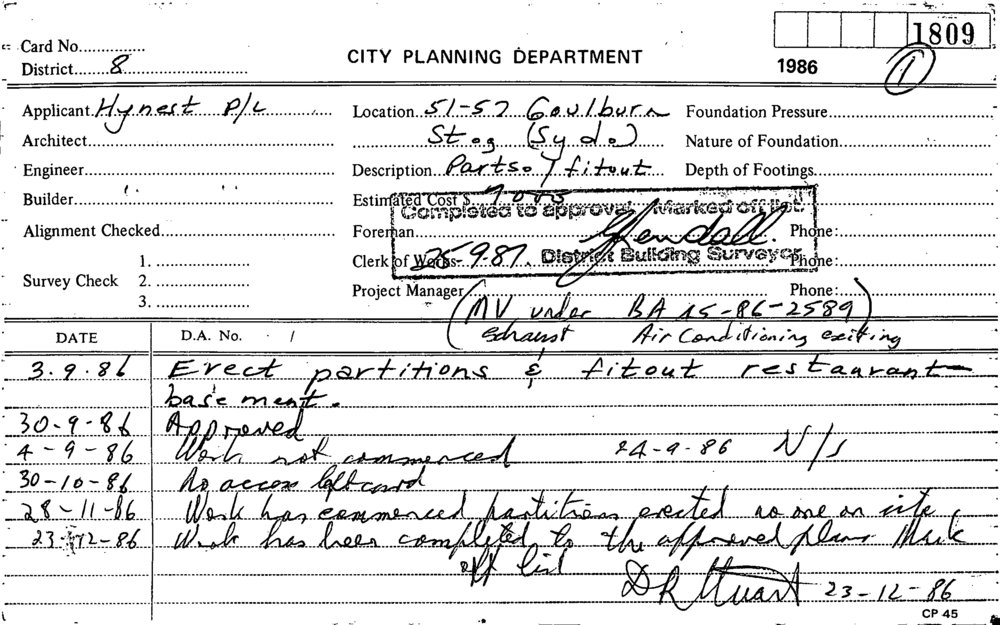 1809
Card No.
CITY PLANNING DEPARTMENT
District 8
1986
1
Applicant Hynest P/L
Location 51-57 Goulburn
Foundation Pressure
Architect
St (Syd.)
Nature of Foundation
Engineer
Description Parts fitout
Depth of Footings
Builder
Estimated Cost $ 7000
Completed to approval Marked off list.
Alignment Checked
Foreman
Kendall.
Phone:
Clerk of Works
25-9-87.
District Building Surveyor
Phone:
Survey Check
1.
2.
3.
Project Manager
Phone:
(MV under BA 45-86-2589)
exhaust Air Conditioning exiting
DATE
D.A. No. /
3.9.86 Erect partitions & fitout restaurant
basement.
30-9-86 Approved
4-9-86 Work not commenced 24-9-86 N/s
30-10-86 No access left card
28-11-86 Work has commenced partitions erected no one on site
23-12-86 Work has been completed to the approved plans Mark
off list
DR Stuart 23-12-86
CP 45